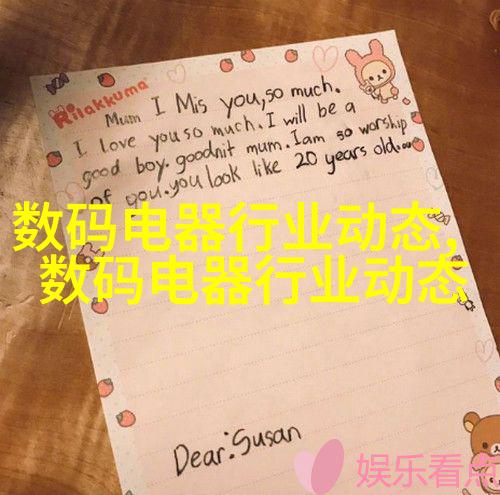 Rilakkuma
Mum I Mis you, so much.
I love you so much. I will be a
good boy. goodnit mum. Iam so worship
of you. you look like 20 years old....
数码电器行业动态,
数码电器行业动态
Dear: Susan
娱乐看点